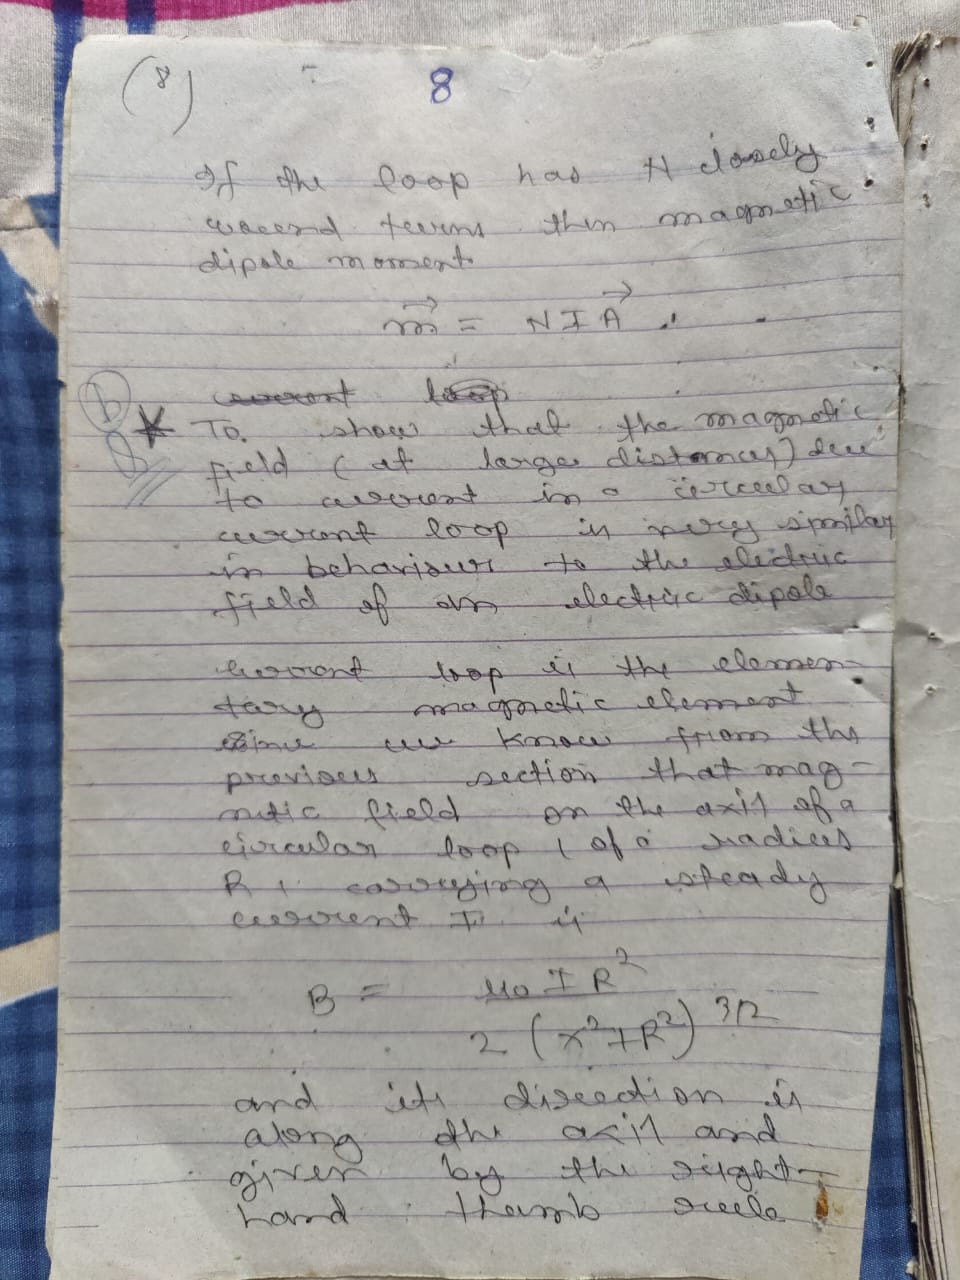 (8) 8
If the loop has N closely
wound turns then magnetic
dipole moment
m⃗ = N I A⃗
current loop
(b) * To show that the magnetic
field (at large distances) due
to current in a circular
current loop is very similar
in behaviour to the electric
field of an electric dipole
Current loop is the elemen-
tary magnetic element
Since we know from the
previous section that mag-
netic field on the axis of a
circular loop (of a radius
R, carrying a steady
current I) is
B = μ0 I R²
2 (x²+R²)^3/2
and its direction is
along the axis and
given by the right-
hand thumb rule